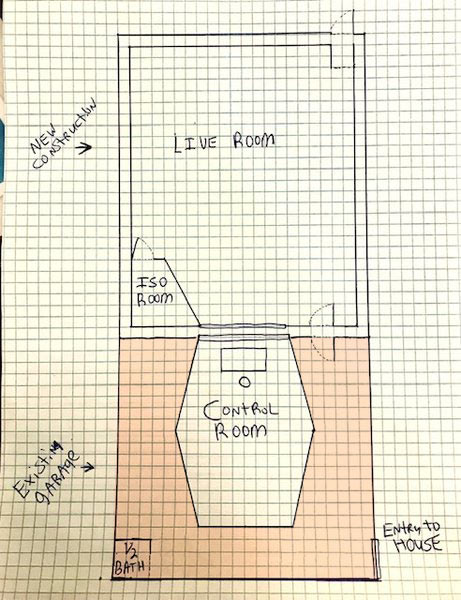 NEW
CONSTRUCTION
LIVE ROOM
ISO
ROOM
CONTROL
ROOM
Existing
gARAge
1/2
BATH
ENtRy to
HOUSE